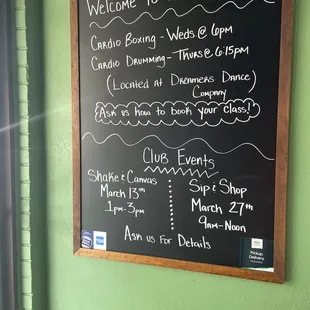 Welcome To
Cardio Boxing - Weds @ 6pm
Cardio Drumming - Thurs @ 6:15pm
(Located at Dreamers Dance
Company)
Ask us how to book your class!
Club Events
Shake & Canvas
March 13th
1pm-3pm
Sip & Shop
March 27th
9am-Noon
Ask us For Details
Pickup
Delivery